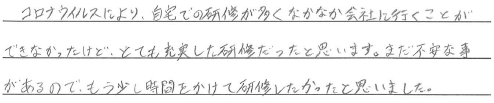 コロナウイルスにより、自宅での研修が多くなかなか会社に行くことが
できなかったけど、とても充実した研修だったと思います。まだ不安な事
があるので、もう少し時間をかけて研修したかったと思いました。